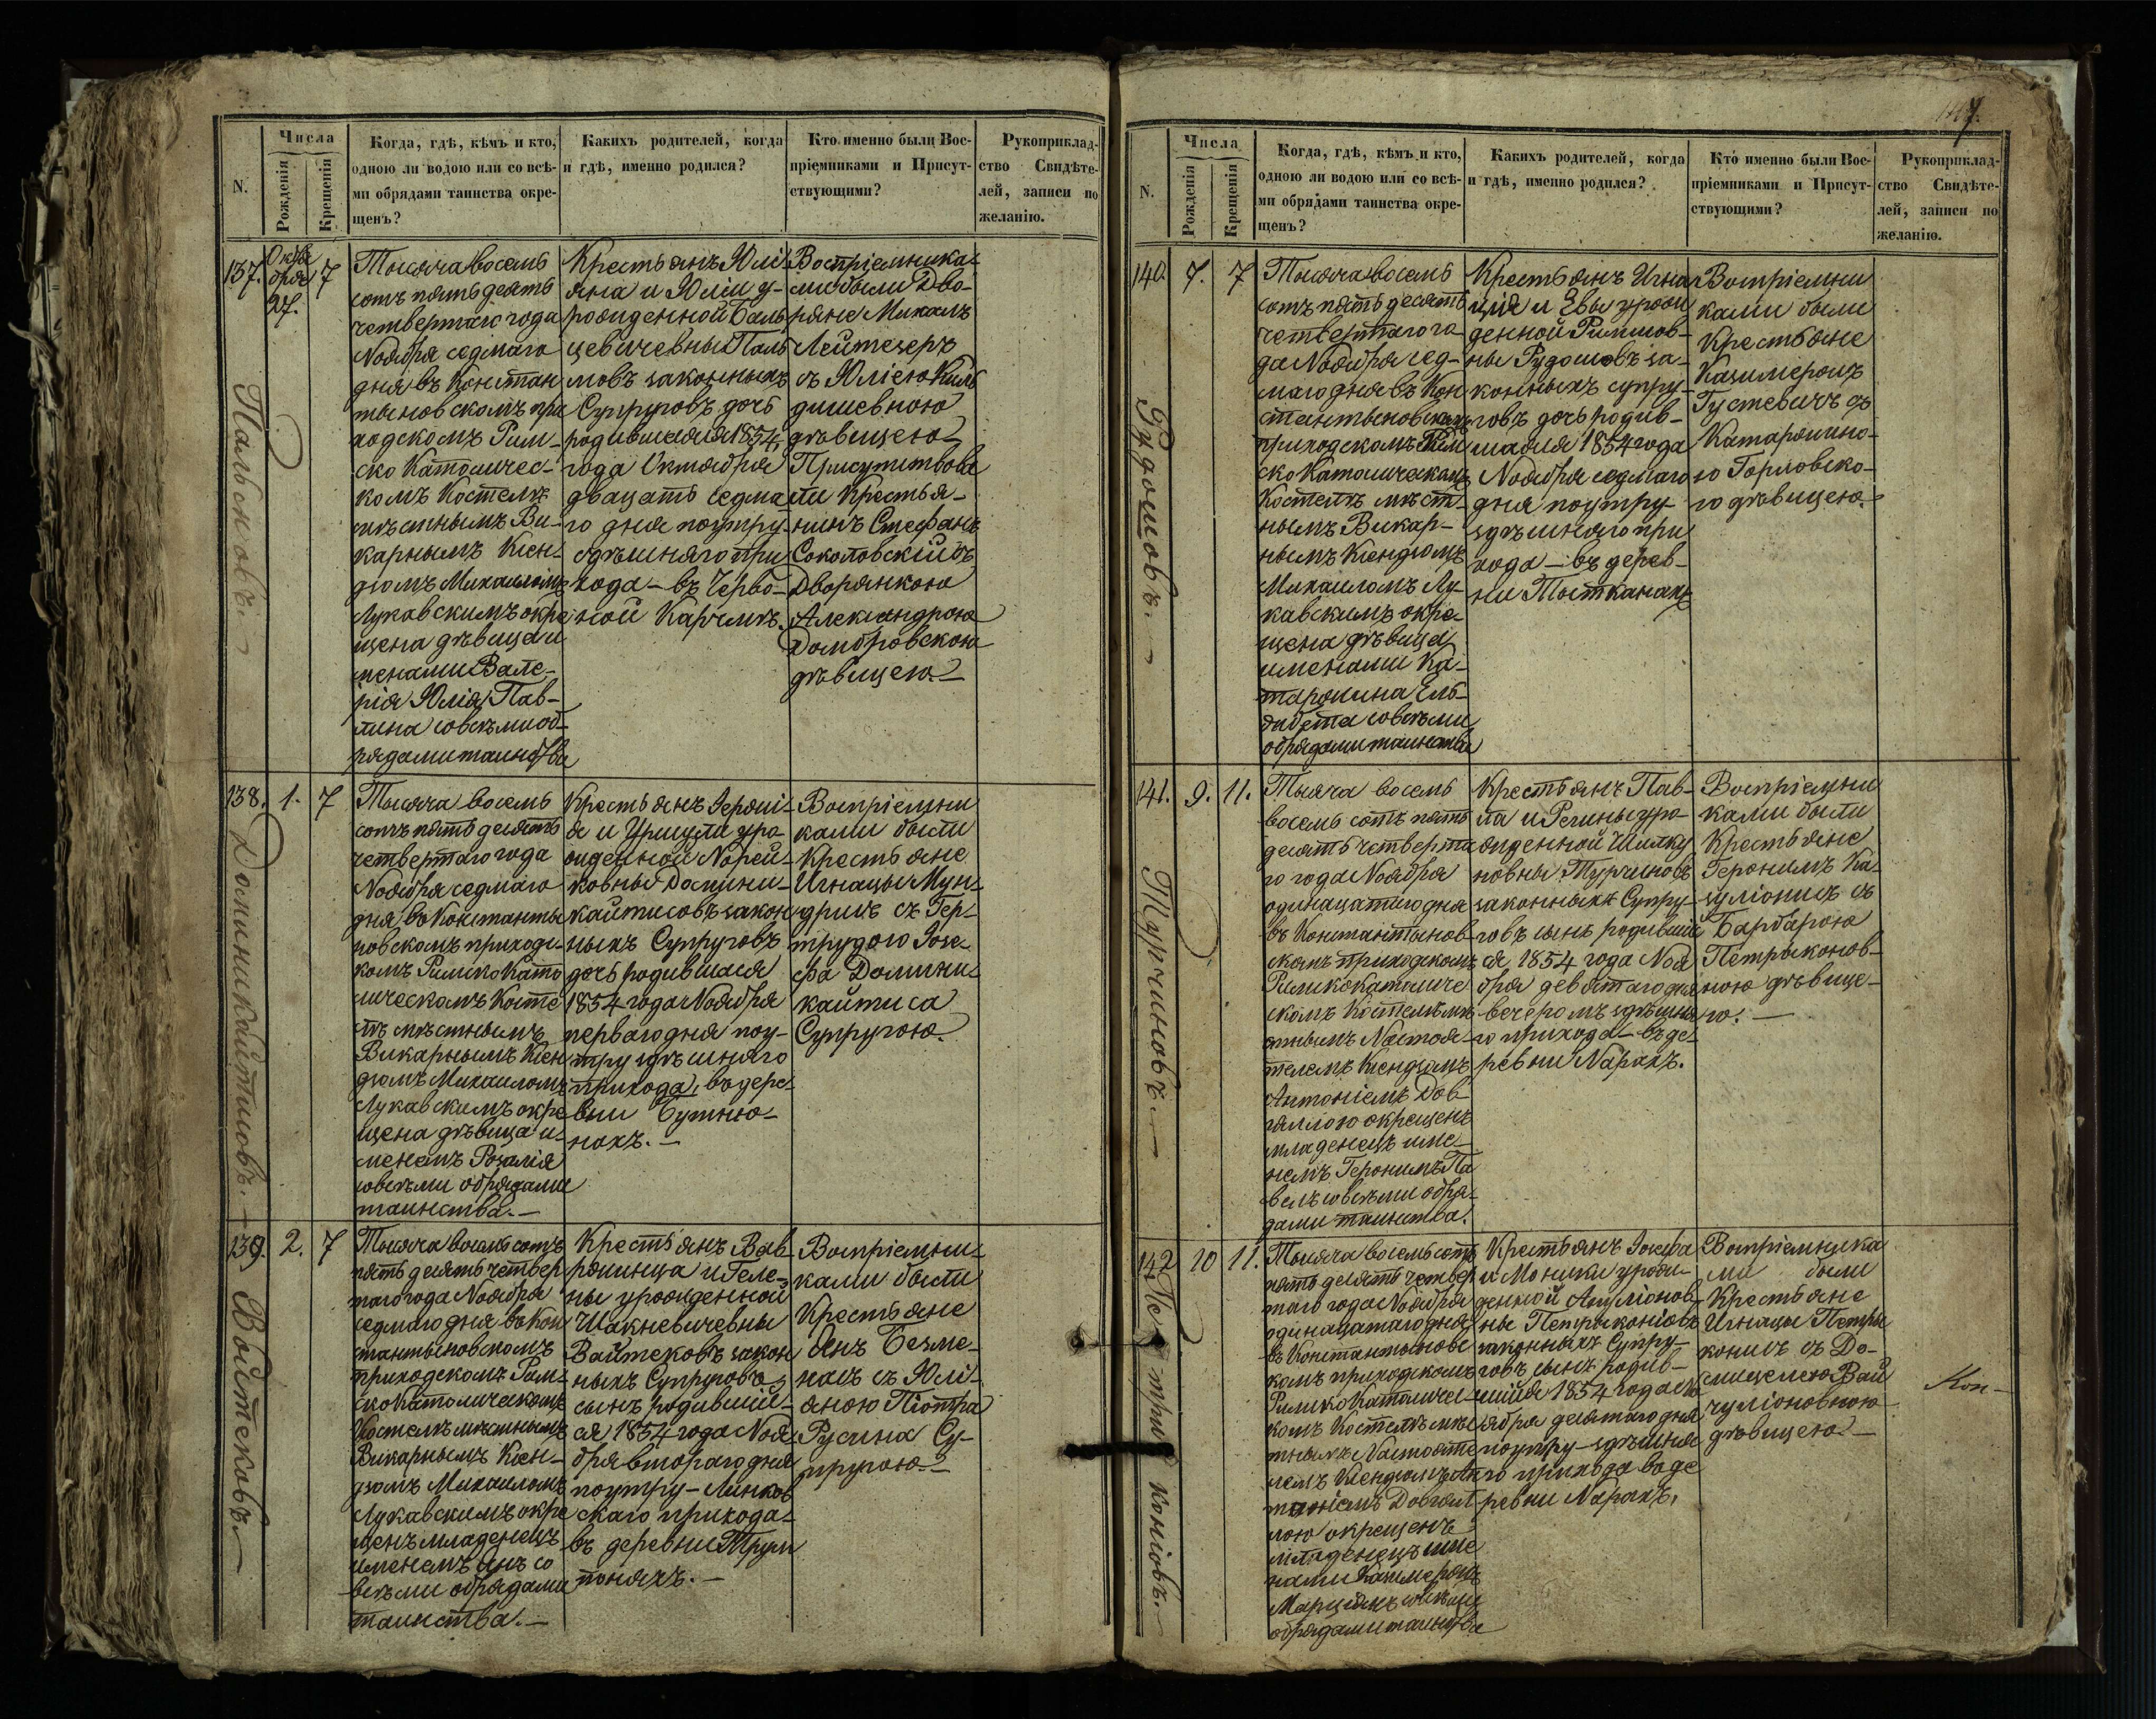 N.
Числа
Рожденія
Крещенія
Когда, гдѣ, кѣмъ и кто,
одною ли водою или со всѣ-
ми обрядами таинства окре-
щенъ?
Какихъ родителей, когда
и гдѣ, именно родился?
Кто именно были Вос-
пріемниками и Присут-
ствующими?
Рукоприклад-
ство Свидѣте-
лей, записи по
желанію.
137.
Октя
бря
27.
7
Тысяча восемь
сотъ пять десять
четвертаго года
Ноября седмаго
дня въ Констан
тыновскомъ при
ходскомъ Рим-
ско Католичес-
комъ Костелѣ
мѣстнымъ Ви-
карнымъ Ксен-
дзомъ Михаиломъ
Лукавскимъ окре
щена дѣвица и
менами Вале-
рія Юлія Пав-
лина со всѣми об-
рядами таинства
Крестьянъ Юлі-
яна и Юліи у-
рожденной Баль
цевичевны Паль
мовъ законныхъ
Супруговъ дочь
родившаяся 1854
года Октября
двацать седма
го дня поутру
здѣшняго при
хода - въ Черво-
ной Карчмѣ.
Воспріемника-
ми были Дво-
ряне Михалъ
Лейтезеръ
съ Юліею
дѣвицею
Присутствова
ли Крестья-
нинъ Стефанъ
Соколовскій съ
Дворянкою
Александрою
Домбровскою
дѣвицею.-
Пальмовъ.
138.
1.
7
Тысяча восемь
сотъ пять десять
четвертаго года
Ноября седмаго
дня во Константы
новскомъ приходс-
комъ Римско Като
лическомъ Косте
лѣ мѣстнымъ
Викарнымъ Ксен
дзомъ Михаиломъ
Лукавскимъ окре
щена дѣвица и-
менемъ Розалія
со всѣми обрядами
таинства.-
Крестьянъ Іероні-
я и Уршули уро-
жденной Норей-
ковны Домини-
кайтисовъ закон
ныхъ Супруговъ
дочь родившаяся
1854 года Ноября
перваго дня поу-
тру здѣшняго
прихода, въ дере-
вни Бутню-
нахъ.-
Воспріемни
ками были
Крестьяне
Игнацы Мун-
дрикъ съ Гер-
трудою Іозе-
фа Домини-
кайтиса
Супругою.
Доминикайтисовъ.
139.
2.
7
Тысяча восемь сотъ
пять десять четвер
таго года Ноября
седмаго дня въ Кон
стантыновскомъ
приходскомъ Рим-
ско Католическомъ
Костелѣ мѣстнымъ
Викарнымъ Ксен-
дзомъ Михаиломъ
Лукавскимъ окре
щенъ младенецъ
именемъ Янъ со
всѣми обрядами
таинства.-
Крестьянъ Вав-
ринца и Геле-
ны урожденной
Шакневичевны
Войтековъ закон
ныхъ Супруговъ
сынъ родившій-
ся 1854 года Ноя
бря втораго дня
поутру - Линков
скаго прихода
въ деревни Трум
понахъ.-
Воспріемни-
ками были
Крестьяне
Янъ Безме-
насъ съ Юлі-
яною Піотра
Русина Су-
пругою.-
Войтековъ
147.
N.
Числа
Рожденія
Крещенія
Когда, гдѣ, кѣмъ и кто,
одною ли водою или со всѣ-
ми обрядами таинства окре-
щенъ?
Какихъ родителей, когда
и гдѣ, именно родился?
Кто именно были Вос-
пріемниками и Присут-
ствующими?
Рукоприклад-
ство Свидѣте-
лей, записи по
желанію.
140.
7.
7
Тысяча восемь
сотъ пять десять
четвертаго го-
да Ноября сед-
маго дня въ Кон
стантыновскомъ
приходскомъ Рим
ско Католическомъ
Костелѣ мѣст-
нымъ Викар-
нымъ Ксендзомъ
Михаиломъ Лу-
кавскимъ окре-
щена дѣвица
именами Ка-
таржина Ель-
збета со всѣми
обрядами таинства
Крестьянъ Игна
ція и Евы урож
денной Римшов-
ны Рудошовъ за-
конныхъ супру-
говъ дочь родив-
шаяся 1854 года
Ноября седмаго
дня поутру
здѣшняго при
хода - въ дерев-
ни Тытканахъ
Воспріемни
ками были
Крестьяне
Казимеромъ
Густевичъ съ
Катаржино-
ю Горловско-
ю дѣвицею.
Рудошовъ.-
141.
9.
11.
Тысяча восемь
восемь сотъ пять
десять четверта
го года Ноября
одинацатаго дня
въ Константынов-
скомъ приходскомъ
Римскокатоличе
скомъ Костелѣ мѣ-
стнымъ Настоя-
телемъ Ксендзомъ
Антоніемъ Дов-
гялло ю окрещенъ
младенецъ име-
немъ Геронимъ Па
велъ со всѣми обря-
дами таинства.
Крестьянъ Пав-
ла и Регины уро-
жденной Шилку
новны Турчиновъ
законныхъ Супру-
говъ сынъ родившій
ся 1854 года Ноя
бря девятаго дня
вечеромъ здѣшня
го прихода - въ де-
ревни Нарахъ.
Воспріемни
ками были
Крестьяне
Геронимъ Ка-
зуліонисъ съ
Барбарою
Петрыконов-
ною дѣвице-
ю.-
Турчиновъ.-
142
10
11.
Тысяча восемь сотъ
пять десять четвер
таго года Ноября
одинацатаго дня
въ Константынове
комъ приходскомъ
Римско Католичес-
комъ Костелѣ мѣс
тнымъ Настояте
лемъ Ксендзомъ Ан
тоніемъ Довгял
лою окрещенъ
младенецъ име
нами Казимеромъ
Марціянъ со всѣми
обрядами таинства
Крестьянъ Іозефа
и Моники урож-
денной Ануліонов-
ны Петрыконіовъ
законныхъ Супру-
говъ сынъ родив-
шійся 1854 года Но
ября десятаго дня
поутру - здѣшня
го прихода въ де
ревни Нарахъ,
Воспріемника
ми были
Крестьяне
Игнацы Петры
конисъ съ До-
мицелею Вай
чуліоновною
дѣвицею.-
Пе-
три
коніовъ.
Коп-